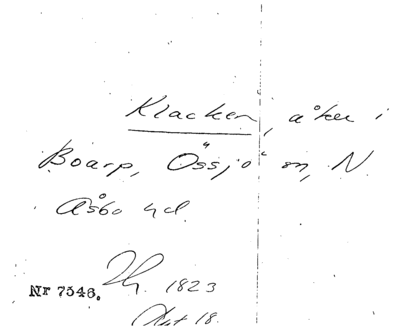 Klacken, åker i
Boarp, Össjö sn, N.
Åsbo hd.
Nr 7546. 1823
18.